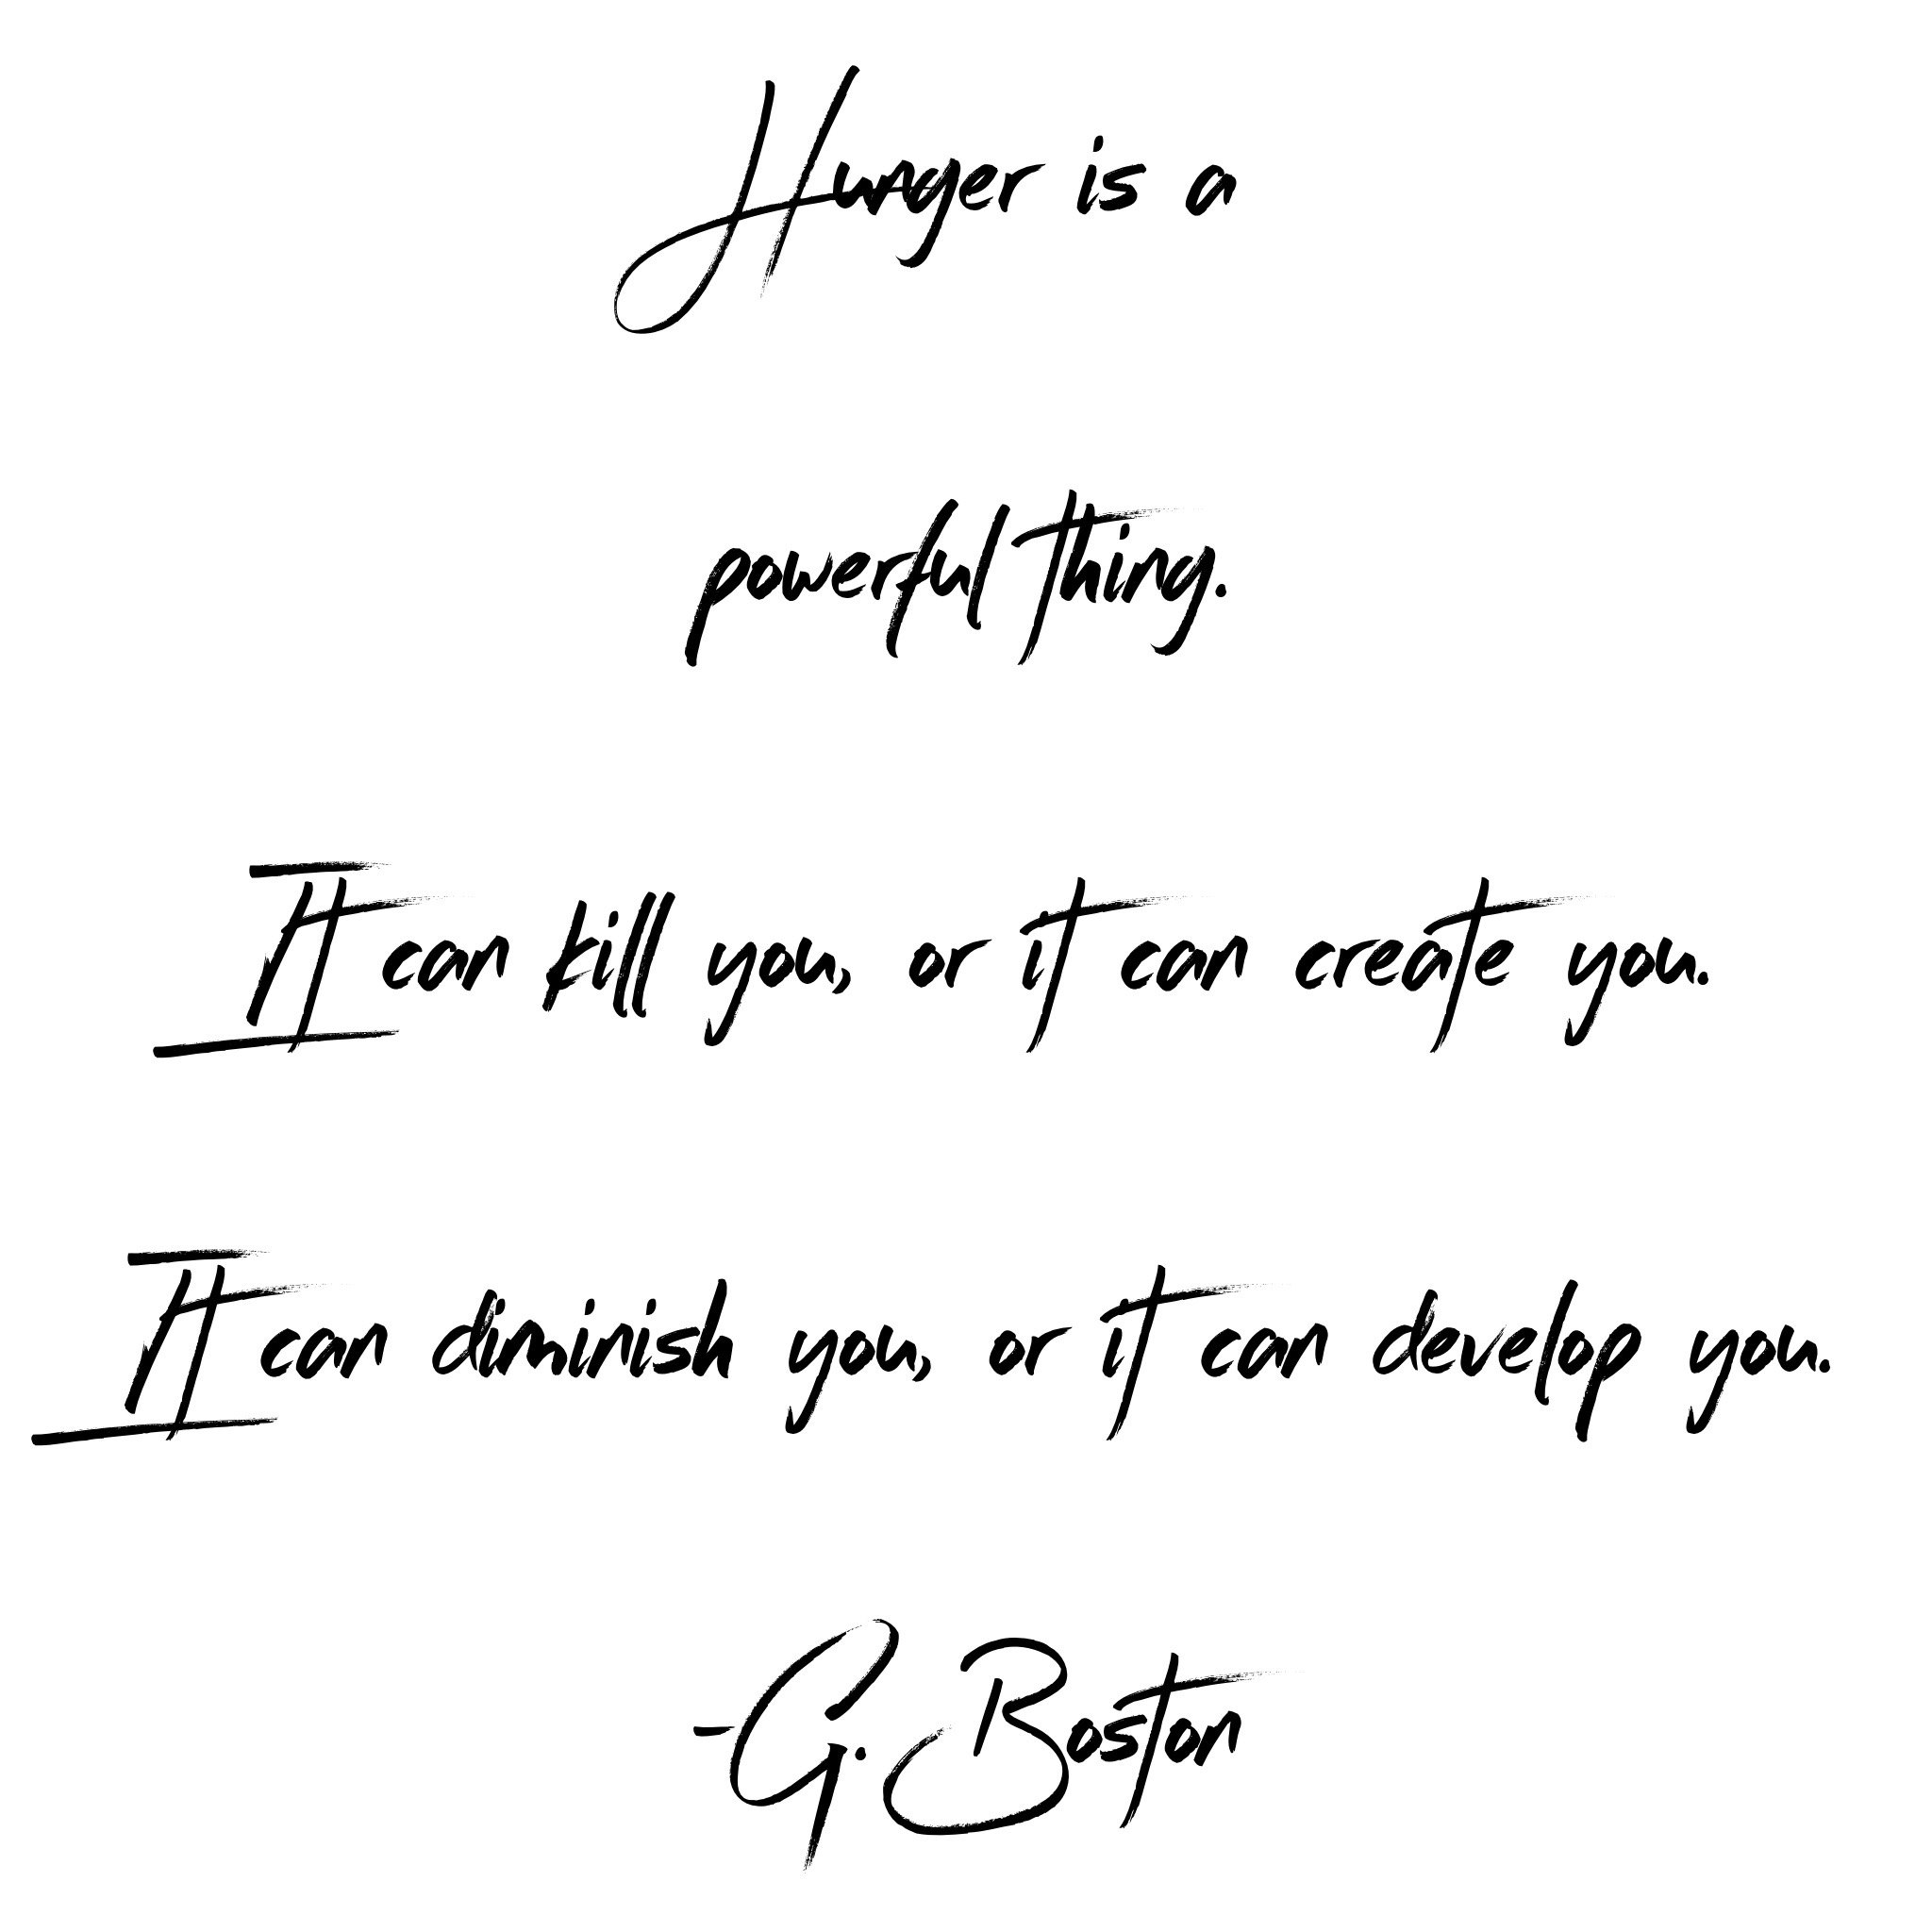 Hunger is a
powerful thing.
It can kill you, or it can create you.
It can diminish you, or it can develop you.
-G. Boston